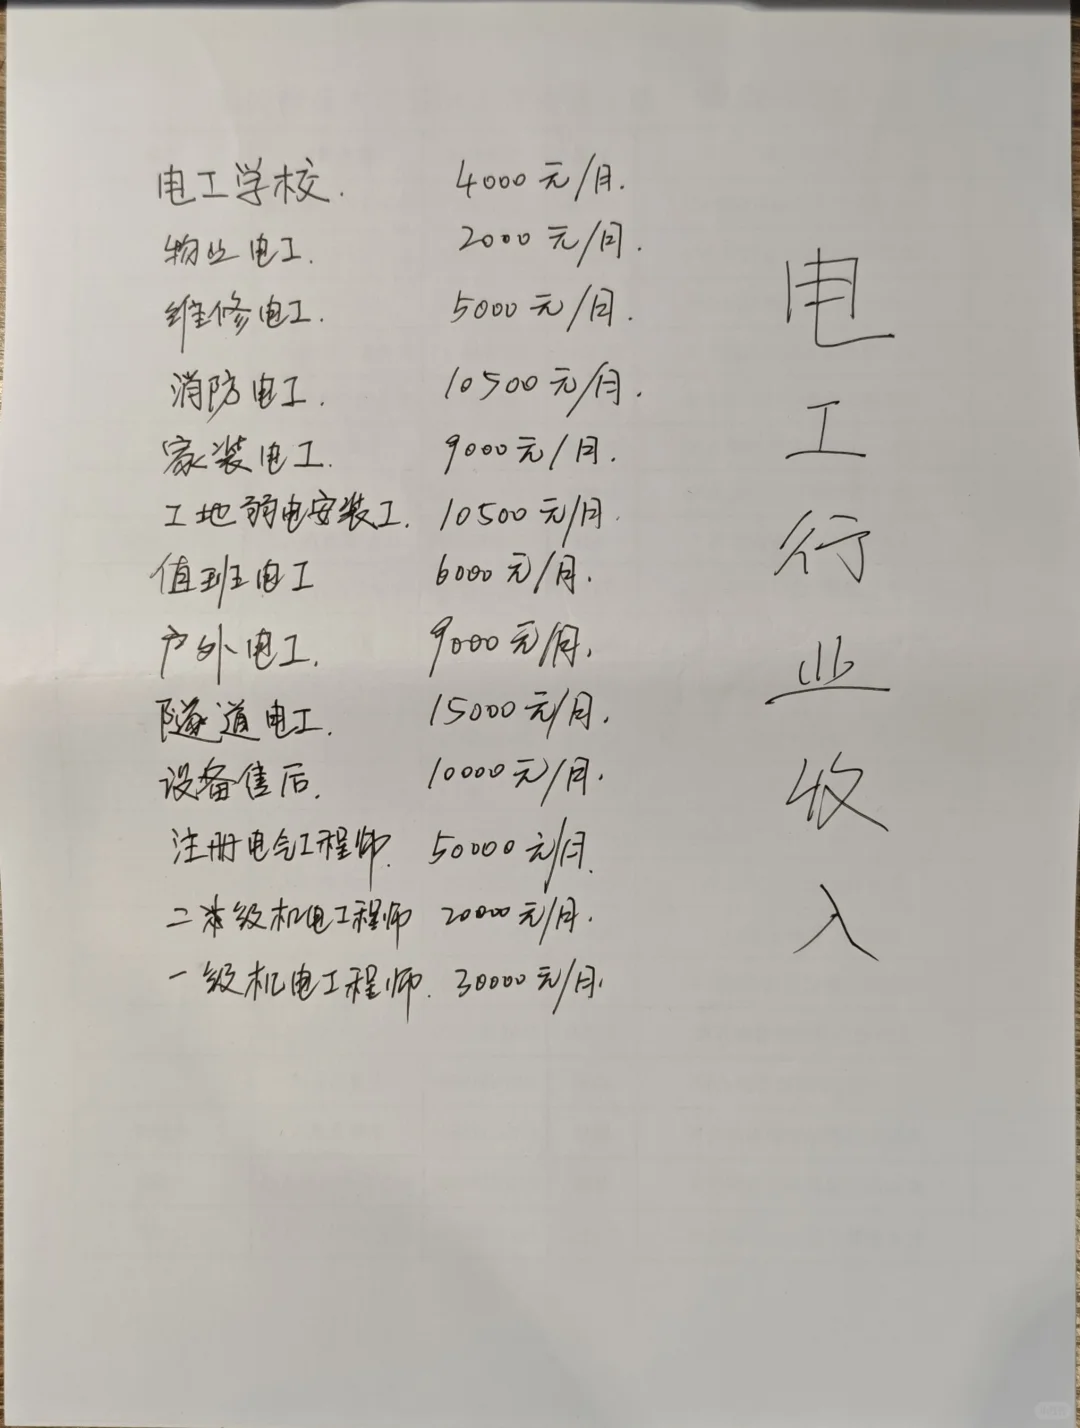 电工学校. 4000元/月.
物业电工. 2000元/月.
维修电工. 5000元/月.
消防电工. 10500元/月.
家装电工. 9000元/月.
工地弱电安装工. 10500元/月.
值班电工 6000元/月.
户外电工. 9000元/月.
隧道电工. 15000元/月.
设备售后. 10000元/月.
注册电气工程师. 50000元/月.
二级机电工程师 20000元/月.
一级机电工程师. 30000元/月.
电工行业收入